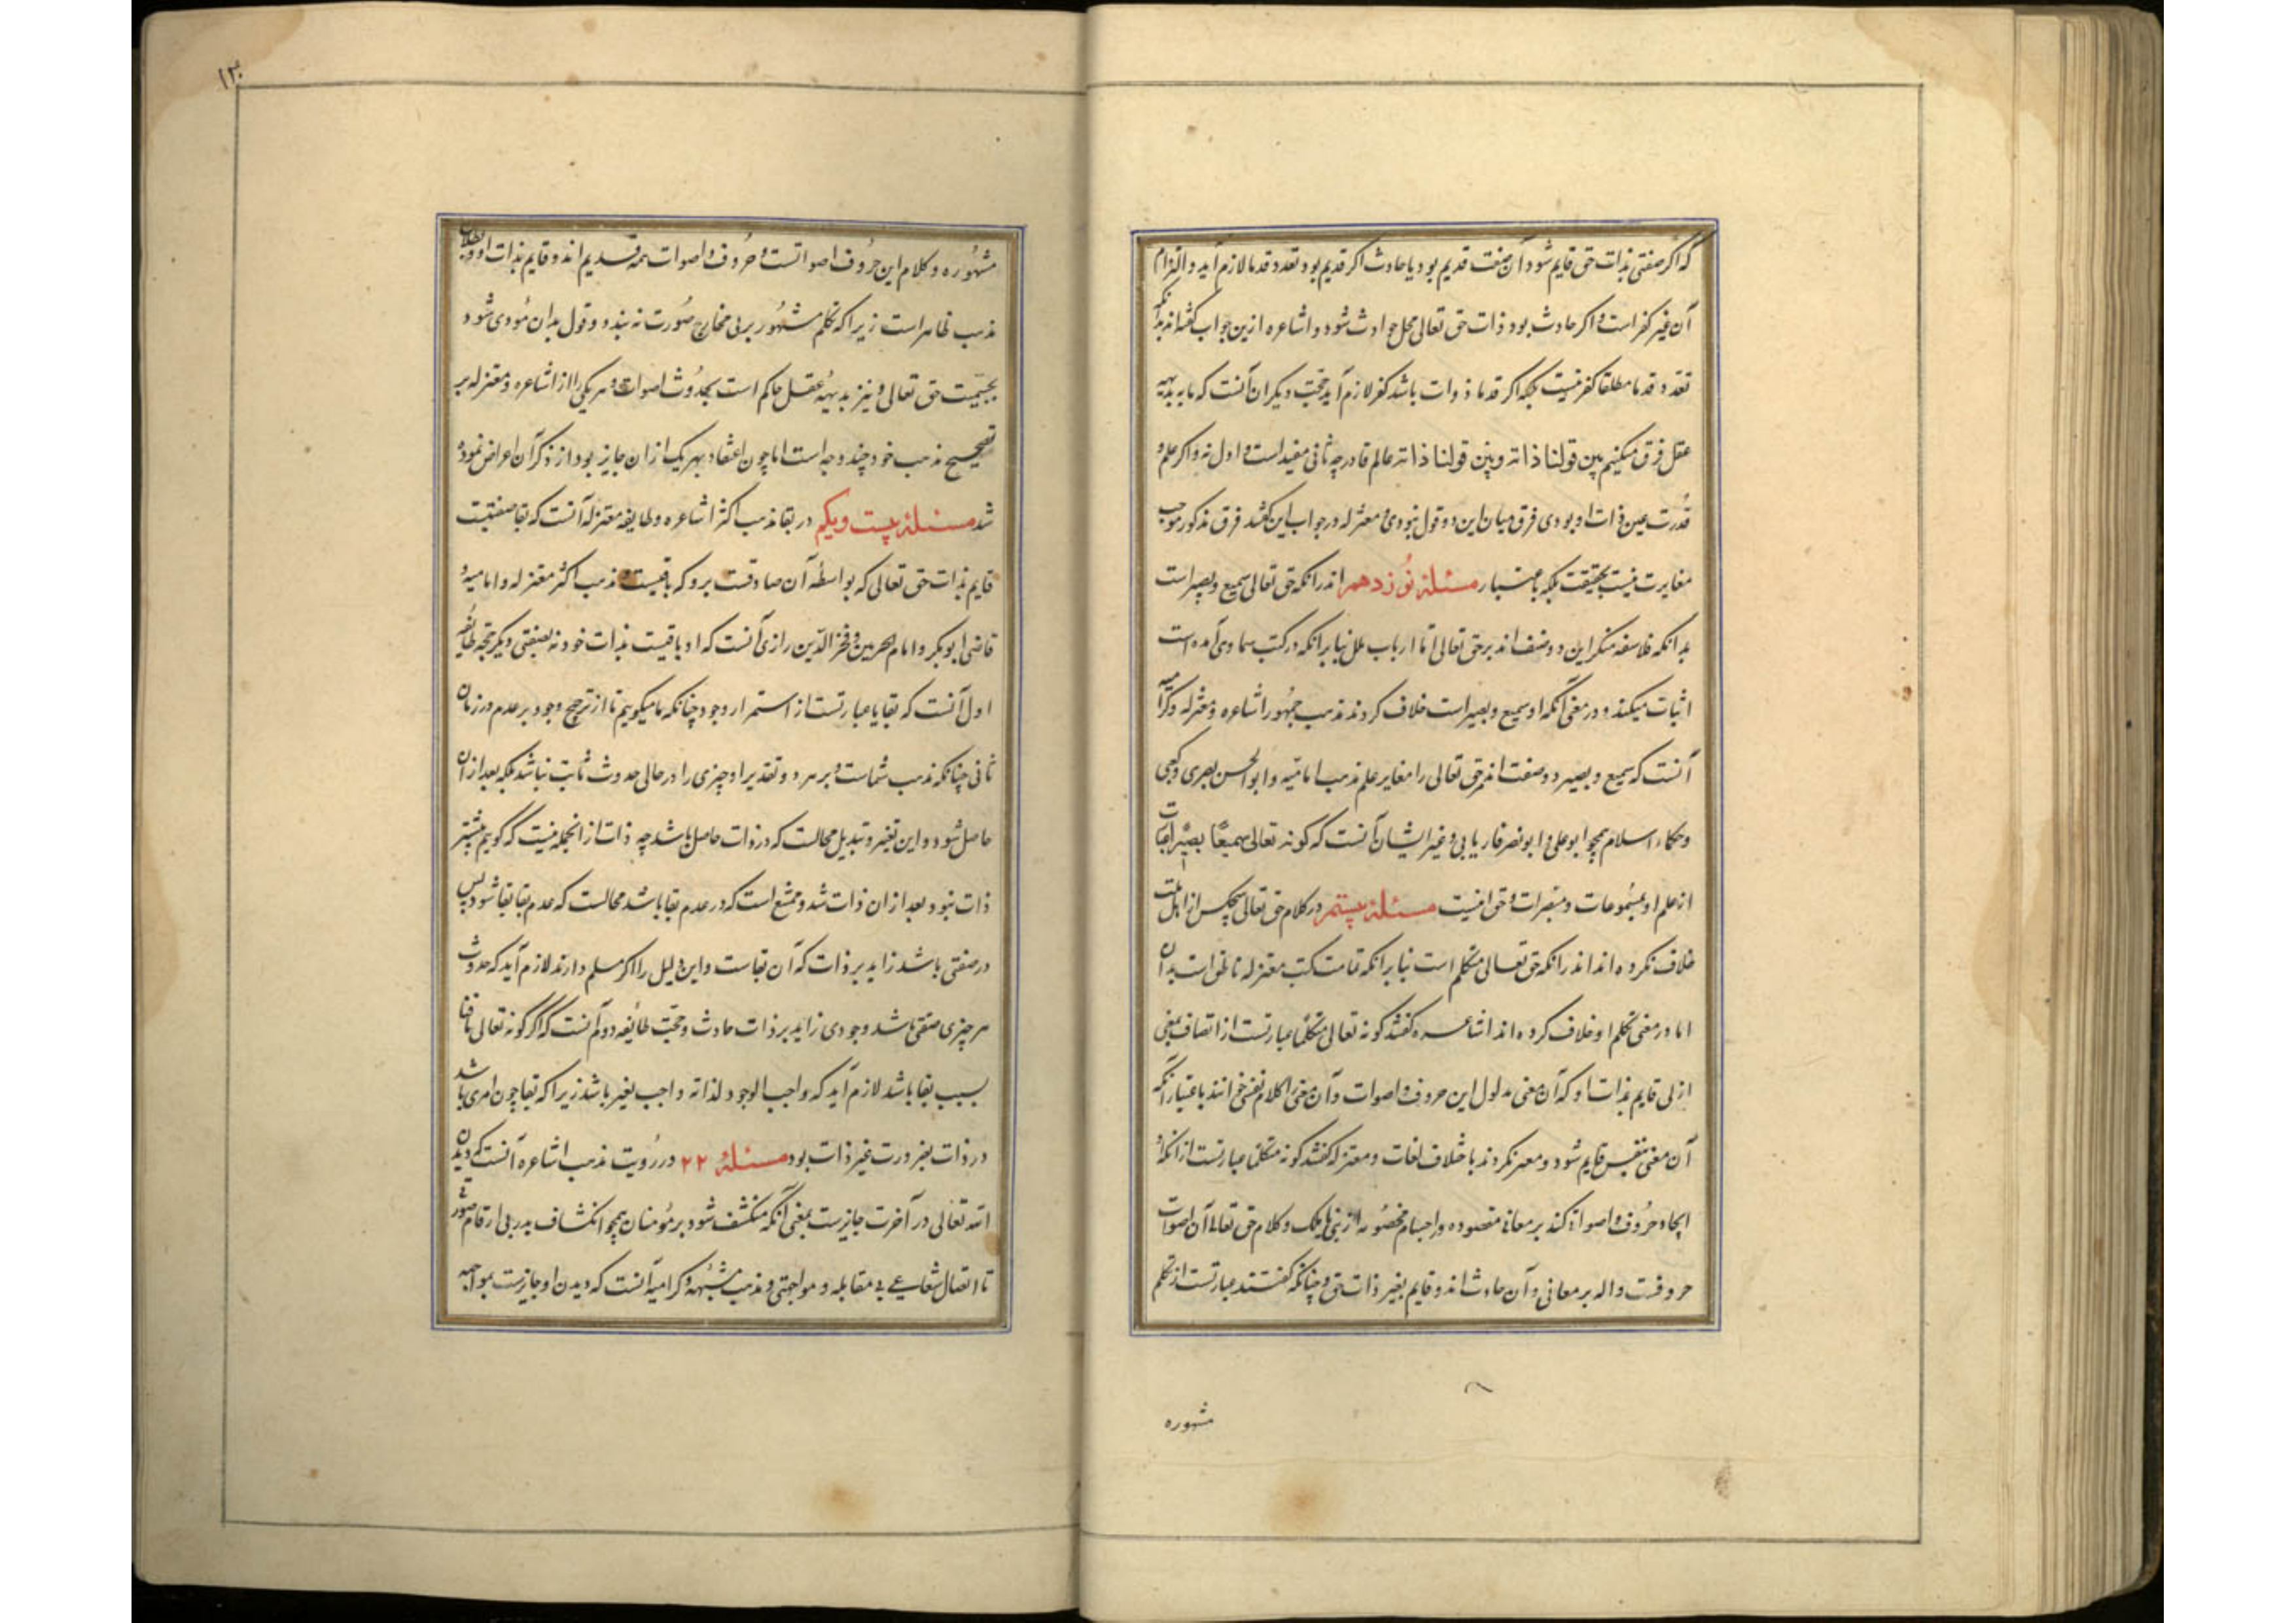 که اگر صفتی بذات حق قایم شود آن صفت قدیم بود یا حادث اگر قدیم بود تعدد قدما لازم آید و التزام
آن غیر کفر است و اگر حادث بود ذات حق تعالی محل حوادث شود و اشاعره ازین جواب گفته‌اند بدانکه
تعدد قدما مطلقا کفر نیست بلکه اگر قدما ذوات باشد کفر لازم آید حجت دیگر ان آنست که ما به بدیهه
عقل فرق میکنیم بین قولنا ذاته و بین قولنا ذاته عالم قادر چه ثانی مفید است و اول نه و اگر علم و
قدرت عین ذات او بودی فرق میان این دو قول نبودی و معتزله در جواب این گفتند فرق مذکور موجب
مغایرت نیست بحقیقت بلکه باعتبار مسئلهٔ نوزدهم اندرانکه حق تعالی سمیع و بصیر است
بدانکه فلاسفه منکر این دو صفت‌اند بر حق تعالی اما ارباب ملل بنابرانکه در کتب سماوی آمده است
اثبات میکنند و در معنی آنکه او سمیع و بصیر است خلاف کردند مذهب جمهور اشاعره و معتزله و کرامیه
آنست که سمیع و بصیر دو صفت‌اند حق تعالی را مغایر علم مذهب امامیه و ابوالحسن بصری و کعبی
و حکماء اسلام همچو ابوعلی و ابونصر فاریابی و غیر ایشان آنست که کونه تعالی سمیعا بصیرا عبارت
از علم او بمسموعات و مبصرات و حق اینست مسئلهٔ بیستم در کلام حق تعالی هیچکس از اهل ملت
خلاف نکرده‌اند اندرانکه حق تعالی متکلم است بنابرانکه تمامت کتب معتزله ناطق است بدان
اما در معنی تکلم او خلاف کرده‌اند اشاعره گفتند کونه تعالی متکلما عبارتست از اتصاف بمعنی
ازلی قایم بذات او که آن معنی مدلول این حروف و اصوات و آن معنی را کلام نفسی خوانند باعتبار آنکه
آن معنی بنفس قایم شود و معبر نکردند باختلاف لغات و معتزله گفتند کونه متکلما عبارتست از انکه او
ایجاد حروف و اصوات کند بر معانی مقصوده در اجسام مخصوصه از نبی یا ملک و کلام حق تعالی آن اصوات
حروفست داله بر معانی و آن حادث‌اند و قایم بغیر ذات حق و چنانکه گفتند عبارتست از تکلم
مشهوره
۱۳
مشهوره و کلام این حروف اصواتست و حروف و اصوات همه قدیم‌اند و قایم بذات او و بطلان
مذهب ظاهر است زیرا که تکلم مشهور بر بی مخارج صورت نه بندد و قول بدان مودی شود
بجسمیت حق تعالی و نیز بدیهه عقل حاکم است بحدوث اصوات و هر یکی را از اشاعره و معتزله بر
تصحیح مذهب خود چند وجه است اما چون اعتقاد بهر یک ازان جایز بود از ذکر آن اعراض نموده
شد مسئلهٔ بیست و یکم در بقا مذهب اکثر اشاعره و طایفه معتزله آنست که بقا صفتیست
قایم بذات حق تعالی که بواسطه آن صادقست برو که باقیست و مذهب اکثر معتزله و امامیه و
قاضی ابوبکر و امام الحرمین و فخر الدین رازی آنست که او باقیست بذات خود نه بصفتی دیگر حجه طایفه
اول آنست که بقا یا عبارتست از استمرار وجود چنانکه ما میگوییم تا از ترجیح وجود بر عدم در زمان
ثانی چنانکه مذهب شماست و بر هر دو تقدیر او چیزی را در حالی حدوث ثابت نباشد بلکه بعد از آن
حاصل شود و این تغیر و تبدیل محالست که در ذات حاصل باشد چه ذات از انجمله نیست که گوییم بیشتر
ذات نبود بعد از ان ذات شد و ممتنع است که در عدم بقا باشد محالست که عدم بقا بقا شود پس
در صفتی باشد زاید بر ذات که آن بقاست و این دلیل را اگر مسلم دارند لازم آید که حدوث
هر چیزی صفتی باشد وجودی زاید بر ذات حادث و حجت طایفه دوم آنست که اگر کونه تعالی باقیا
بسبب بقا باشد لازم آید که واجب الوجود لذاته واجب بغیر باشد زیرا که بقا چون امری باشد
در ذات بضرورت غیر ذات بود مسئلهٔ ۲۲ در رؤیت مذهب اشاعره آنست که دیدن
الله تعالی در آخرت جایزست بمعنی آنکه منکشف شود بر مؤمنان همچو انکشاف بدر بی ارتسام صورتی
تا اتصال شعاعی بی مقابله و مواجهتی و مذهب مشبهه و کرامیه آنست که دیدن او جایزست بمواجهه